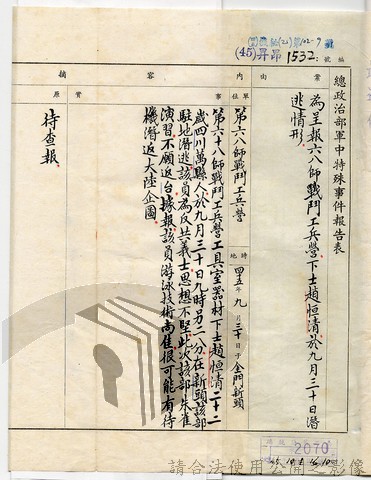 (45)昇昂1532
編號
總政治部軍中特殊事件報告表
案由
為呈報六八師戰鬥工兵營下士趙恒清於九月三十日潛
逃情形
內容摘
單位
第六八師戰鬥工兵營
時地
四五年九月三十日于金門新頭
事實
第六十八師戰鬥工兵營工具室器材下士趙恒清二十二
歲四川萬縣人於九月三十日九時另二八分在新頭該部
駐地潛逃該員為反共義士思想不堅此次該部朱雀
演習不願返台據報該員游泳技術尚佳很可能有待
機潛返大陸企圖
原
待查報
2070
請合法使用公開之影像